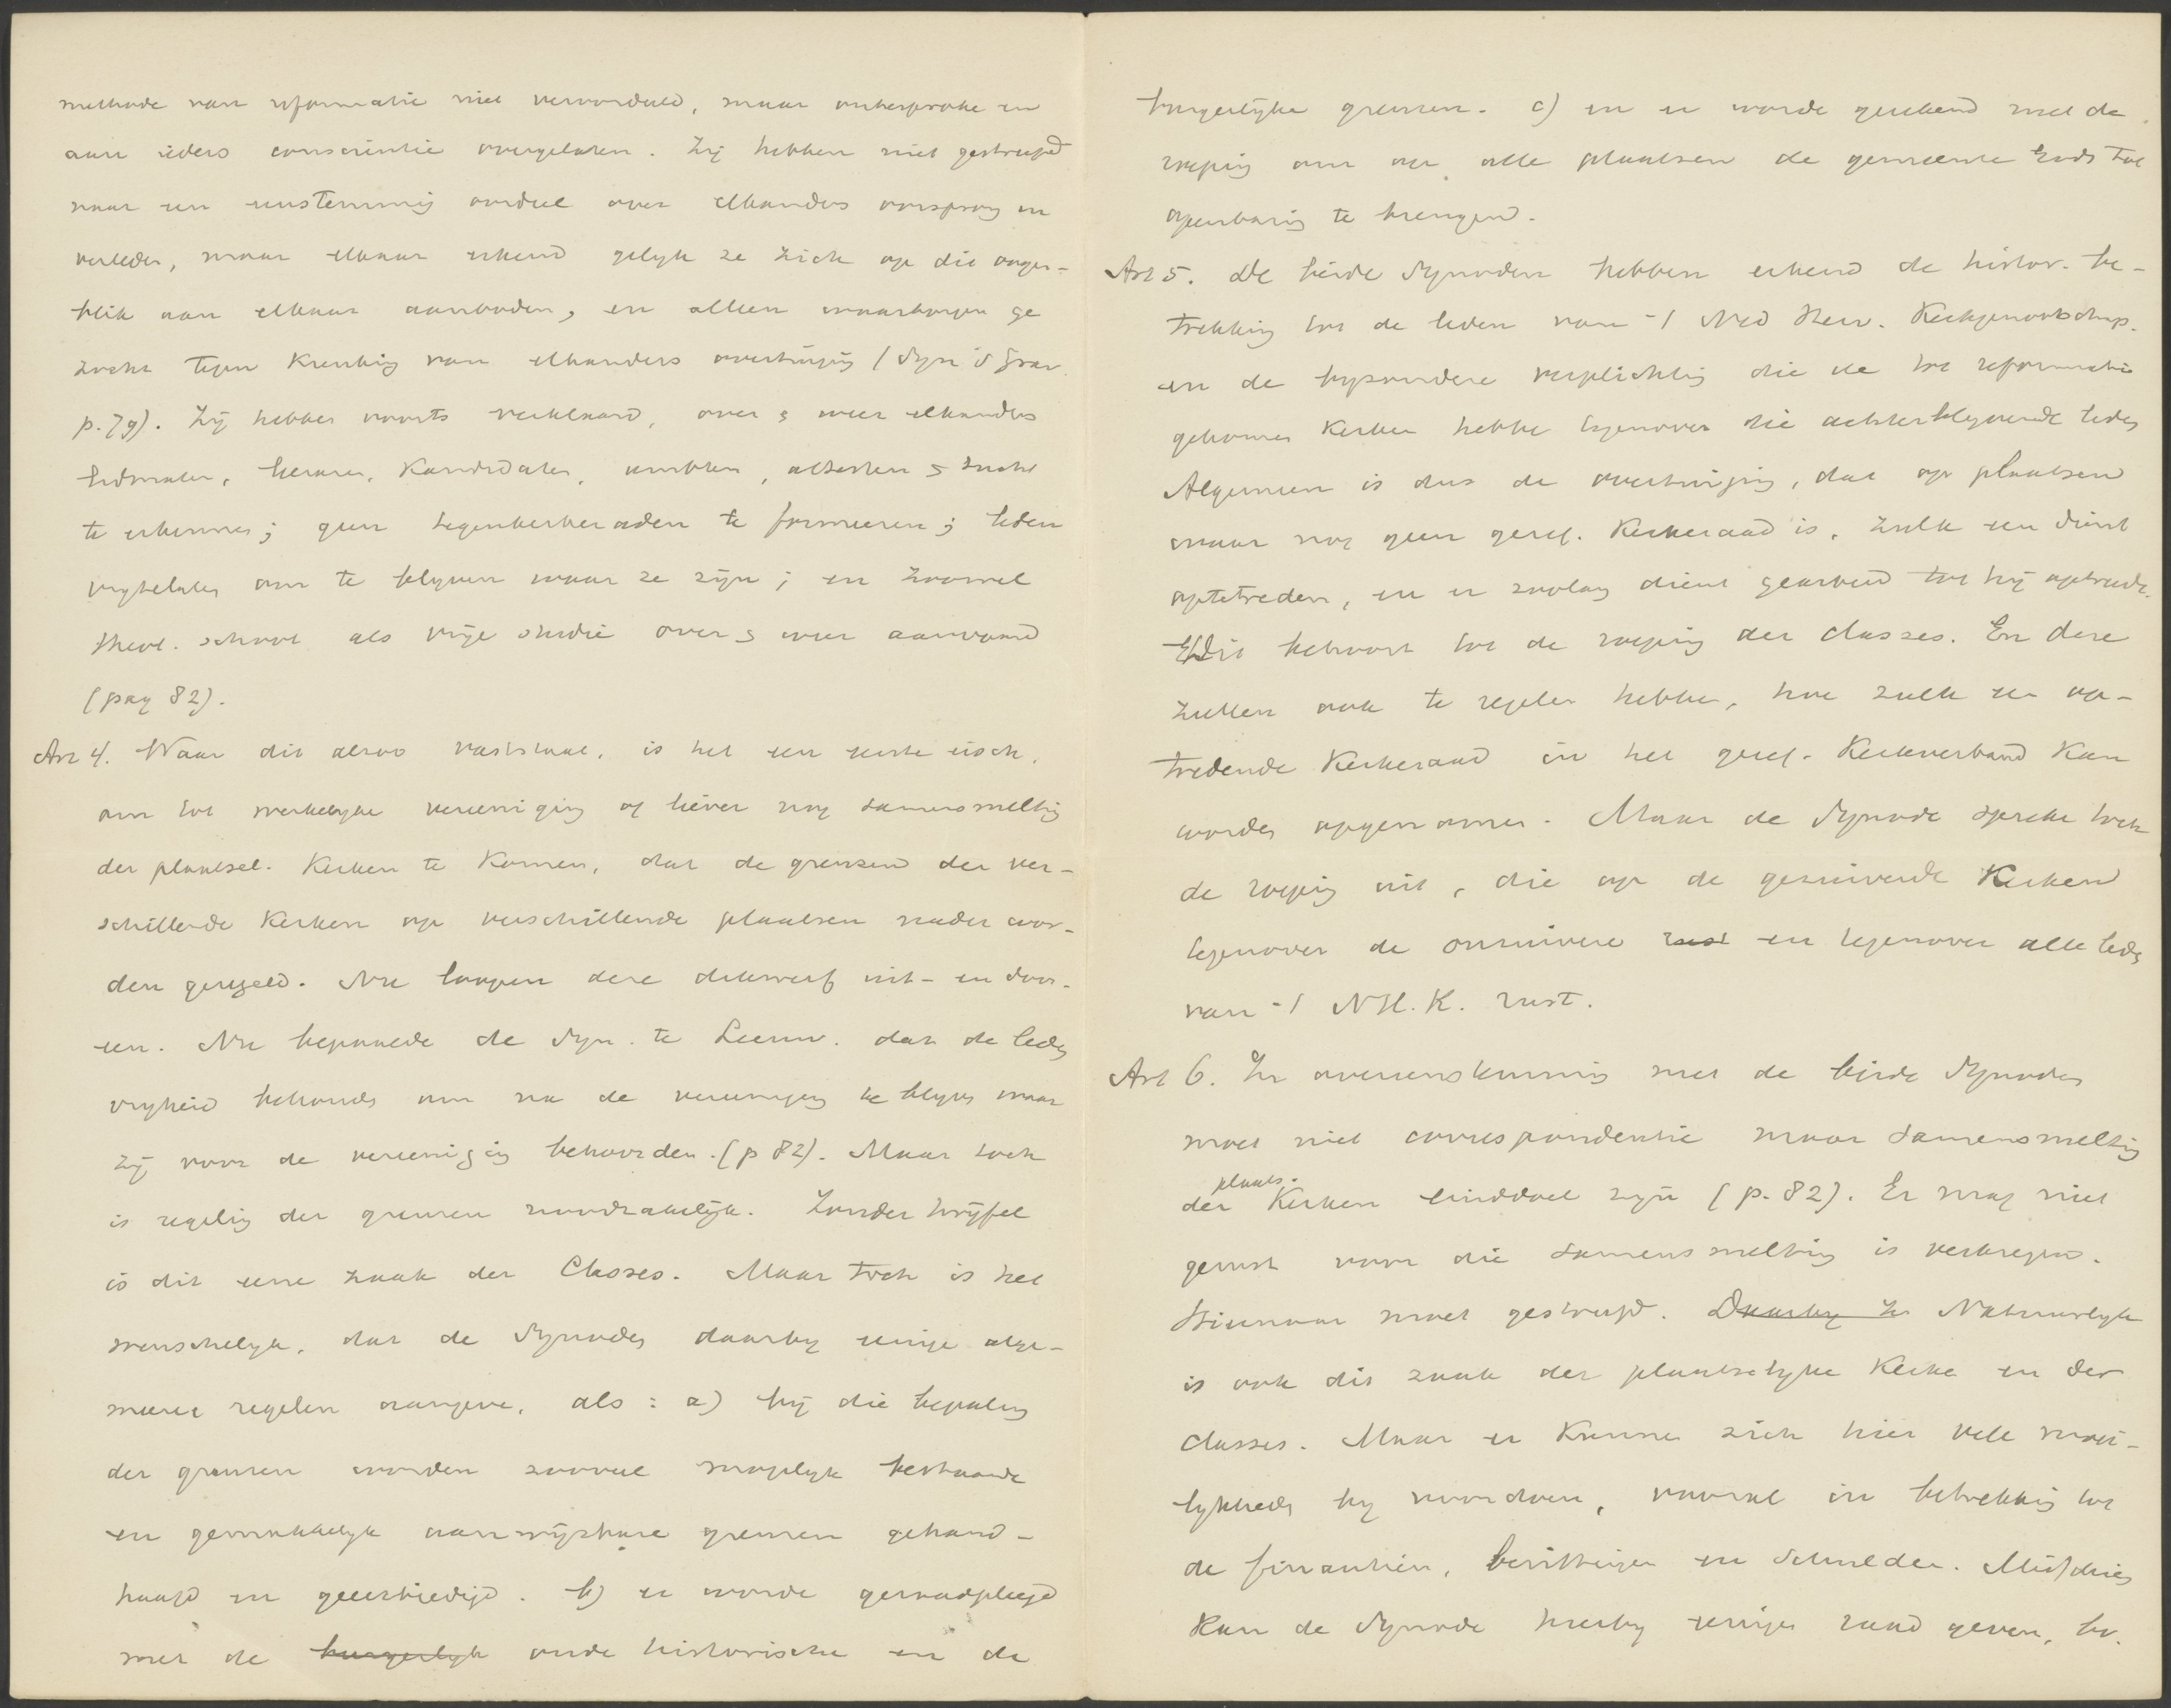 methode van reformatie niet veroordeeld, maar onbesproke en
aan ieders conscientie overgelaten. Zij hebben niet gestreefd
naar een eenstemmig oordeel over elkanders oorsprong en
verleden, maar elkaar erkend gelijk ze zich op dit oogen-
blik aan elkaar aanboden, en alleen waarborgen ge
zocht tegen krenking van elkanders overtuiging (Syn 's Grav.
p. 79). Zij hebben voorts verklaard, over & weer elkanders
lidmaten, leraren, Kandidaten, ambten, attesten & tucht
te erkennen; geen tegenkerkeraden te formeeren; leden
vrijtelaten om te blijven waar ze zijn; en zoowel
theol. school als vrije studie over & weer aanvaard
(pag 82).
Art 4. Waar dit alzoo vaststaat, is het een eerste eisch,
om tot werkelijke vereeniging of liever nog samensmelting
der plaatsel. Kerken te komen, dat de grenzen der ver-
schillende Kerken op verschillende plaatsen nader wor-
den geregeld. Nu loopen deze dikwerf uit- en door-
een. Nu bepaalde de Syn. te Leeuw. dat de leden
vrijheid behouden om na de vereeniging te blijven waar
zij voor de vereeniging behoorden. (p 82). Maar toch
is regeling der grenzen noodzakelijk. Zonder twijfel
is dit eene zaak der Classes. Maar toch is het
wenschelijk, dat de Synodes daarbij eenige alge-
meene regelen aangeve, als: a) bij die bepaling
der grenzen worden zooveel mogelijk bestaande
en gemakkelijk aanwijsbare grenzen gehand-
haafd en geeerbiedigd. b) er worde geraadpleegd
met de burgerlijk oude historische en de
burgerlijke grenzen. c) en er worde gerekend met de
roeping om op alle plaatsen de gemeente Gods tot
openbaring te brengen.
Art 5. De beide Synoden hebben erkend de histor. be-
trekking tot de leden van -/ Ned Herv. Kerkgenootschap.
en de bijzondere verplichting die de tot reformatie
gekomen Kerken hebbe tegenover die achterblijvende leden
Algemeen is dus de overtuiging, dat op plaatsen
waar nog geen geref. Kerkeraad is, zulk een dient
optetreden, en er zoolang dient gearbeid tot hij optrede.
Dit behoort tot de roeping der classes. En deze
zullen ook te regelen hebben, hoe zulk een op-
tredende Kerkeraad in het geref. Kerkverband kan
worden opgenomen. Maar de Synode spreke toch
de roeping uit, die op de gezuiverde Kerken
tegenover de onzuivere rust en tegenover alle leden
van -/ N H. K. rust.
Art 6. In overeenstemming met de beide Synodes
moet niet correspondentie maar samensmelting
plaats.
der Kerken einddoel zijn (p. 82). Er mag niet
gerust voor die samensmelting is verkregen.
Hiernaar moet gestreefd. Daarbij is Natuurlijk
is ook dit zaak der plaatselijke Kerke en der
classes. Maar er kunnen zich hier vele moei-
lijkheden bij voordoen, vooral in betrekking tot
de financiën, bezittingen en schulden. Misschien
kan de Synode hierbij eenigen raad geven, bv.